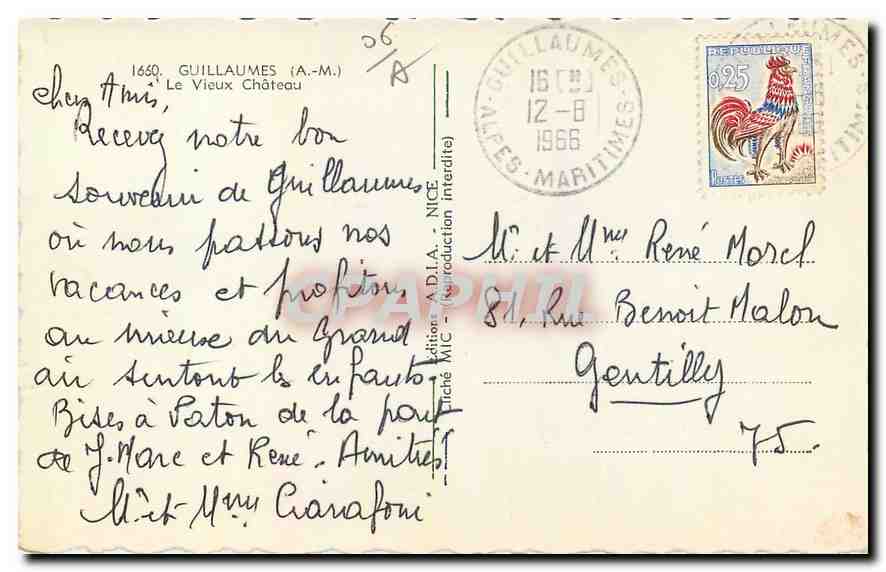 06/A
1660. GUILLAUMES (A.-M.)
Le Vieux Château
Cher Amis,
Recevez notre bon
souvenir de Guillaumes
où nous passons nos
vacances et profitons
au mieux du Grand
air surtout les enfants.
Bises à Paton de la part
de J-Marc et René. Amitiés
Mr et Mme
Editions - A.D.I.A. - NICE
Cliché MIC - (Reproduction interdite)
GUILLAUMES
16 H
12-8
1966
ALPES-MARITIMES
REPUBLIQUE FRANÇAISE
0,25
POSTES
Mr et Mme René Morel
81, Rue Benoit Malon
Gentilly
75.
CPAPHIL